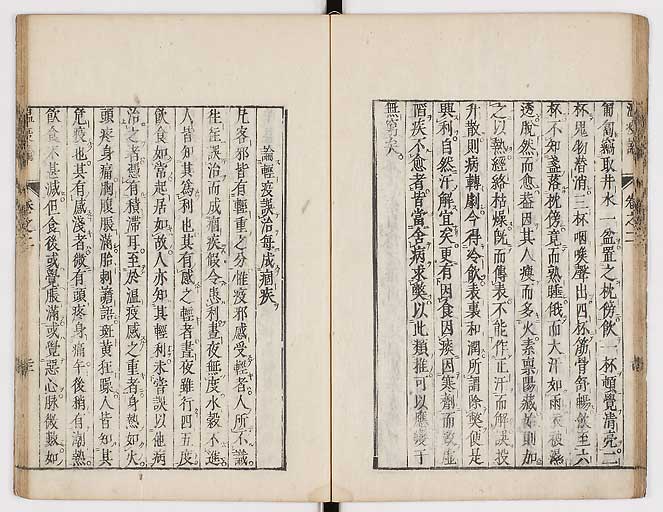 匍匐竊取井水一盆置之枕傍飲一杯頓覺清亮二
杯鬼物潛消三杯咽喉聲出四杯筋骨舒暢飲至六
杯不知盞落枕傍竟而熟睡俄而大汗如雨衣被濕
透脫然而愈蓋因其人瘦而多火素稟陽藏始則加
之以熱經絡枯燥既而傳表不能作正汗而解誤投
升散則病轉劇今得冷飲表裏和潤所謂除獘便是
興利自然汗解宜矣更有因食因痰因寒劑而致虛
陷疾不愈者皆當舍病求獘以此類推可以應變于
無窮矣
論輕疫誤治每成痼疾
凡客邪皆有輕重之分惟疫邪感受輕者人所不識
往往誤治而成痼疾假令患利晝夜無度水穀不進
人皆知其為利也其有感之輕者晝夜雖行四五度
飲食如常起居如故人亦知其輕利未嘗誤以他病
治之者憑有積滯耳至於溫疫感之重者身熱如火
頭疼身痛胸腹脹滿胎刺譫語斑黃狂躁人皆知其
危疫也其有感淺者微有頭疼身痛午後稍有潮熱
飲食不甚減但食後或覺脹滿或覺惡心脉微數如